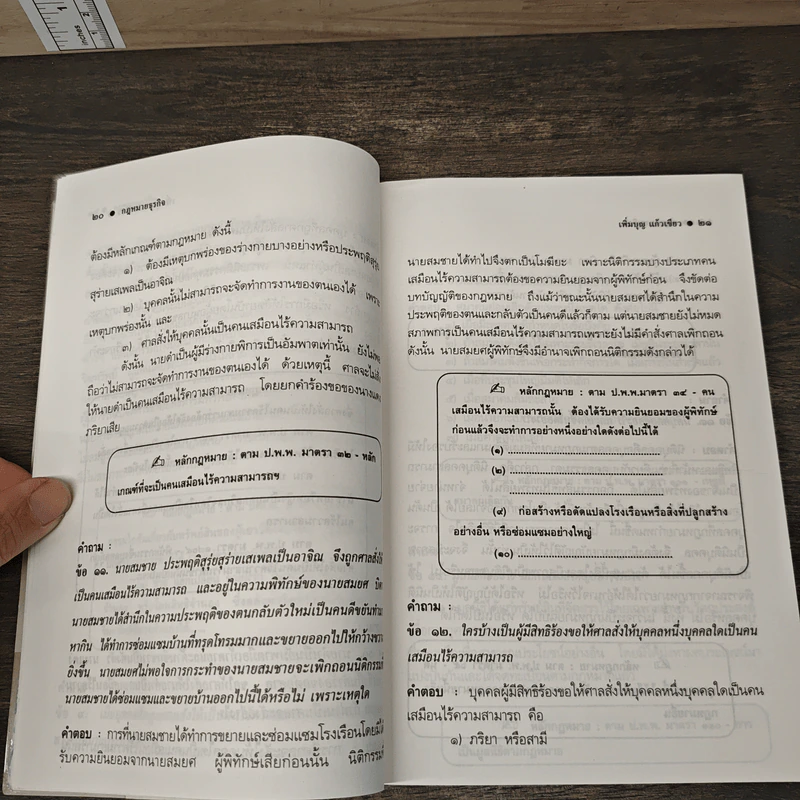 inches
1
2
๒๐ ● กฎหมายธุรกิจ
ต้องมีหลักเกณฑ์ตามกฎหมาย ดังนี้
๑) ต้องมีเหตุบกพร่องของร่างกายบางอย่างหรือประพฤติสุรุ่ย
สุร่ายเสเพลเป็นอาจิณ
๒) บุคคลนั้นไม่สามารถจะจัดทำการงานของตนเองได้ เพราะ
เหตุบกพร่องนั้น และ
๓) ศาลสั่งให้บุคคลนั้นเป็นคนเสมือนไร้ความสามารถ
ดังนั้น นายดำเป็นผู้มีร่างกายพิการเป็นอัมพาตเท่านั้น ยังไม่
ถือว่าไม่สามารถจะจัดทำการงานของตนเองได้ ด้วยเหตุนี้ ศาลจะไม่สั่ง
ให้นายดำเป็นคนเสมือนไร้ความสามารถ โดยยกคำร้องขอของนางแดง
ภริยาเสีย
หลักกฎหมาย : ตาม ป.พ.พ. มาตรา ๓๒ - หลัก
เกณฑ์ที่จะเป็นคนเสมือนไร้ความสามารถฯ
คำถาม :
ข้อ ๑๑. นายสมชาย ประพฤติสุรุ่ยสุร่ายเสเพลเป็นอาจิณ จึงถูกศาลสั่งให้
เป็นคนเสมือนไร้ความสามารถ และอยู่ในความพิทักษ์ของนายสมยศ บิดา
นายสมชายได้สำนึกในความประพฤติของตนกลับตัวใหม่เป็นคนดีขยันทำมา
หากิน ได้ทำการซ่อมแซมบ้านที่ทรุดโทรมมากและขยายออกไปให้กว้างขวาง
ยิ่งขึ้น นายสมยศไม่พอใจการกระทำของนายสมชายจะเพิกถอนนิติกรรมที่
นายสมชายได้ซ่อมแซมและขยายบ้านออกไปนี้ได้หรือไม่ เพราะเหตุใด
คำตอบ : การที่นายสมชายได้ทำการขยายและซ่อมแซมโรงเรือนโดยมิได้
รับความยินยอมจากนายสมยศ ผู้พิทักษ์เสียก่อนนั้น นิติกรรมที่
เพิ่มบุญ แก้วเขียว ● ๒๑
นายสมชายได้ทำไปจึงตกเป็นโมฆียะ เพราะนิติกรรมบางประเภทคน
เสมือนไร้ความสามารถต้องขอความยินยอมจากผู้พิทักษ์ก่อน จึงขัดต่อ
บทบัญญัติของกฎหมาย ถึงแม้ว่าขณะนั้นนายสมยศได้สำนึกในความ
ประพฤติของตนและกลับตัวเป็นคนดีแล้วก็ตาม แต่นายสมชายยังไม่หมด
สภาพการเป็นคนเสมือนไร้ความสามารถเพราะยังไม่มีคำสั่งศาลเพิกถอน
ดังนั้น นายสมยศผู้พิทักษ์จึงมีอำนาจเพิกถอนนิติกรรมดังกล่าวได้
หลักกฎหมาย : ตาม ป.พ.พ.มาตรา ๓๔ - คน
เสมือนไร้ความสามารถนั้น ต้องได้รับความยินยอมของผู้พิทักษ์
ก่อนแล้วจึงจะทำการอย่างหนึ่งอย่างใดดังต่อไปนี้ได้
(๑) ............................................
(๒) ............................................
............................................
(๙) ก่อสร้างหรือดัดแปลงโรงเรือนหรือสิ่งที่ปลูกสร้าง
อย่างอื่น หรือซ่อมแซมอย่างใหญ่
(๑๐) ............................................
คำถาม :
ข้อ ๑๒. ใครบ้างเป็นผู้มีสิทธิร้องขอให้ศาลสั่งให้บุคคลหนึ่งบุคคลใดเป็นคน
เสมือนไร้ความสามารถ
คำตอบ : บุคคลผู้มีสิทธิร้องขอให้ศาลสั่งให้บุคคลหนึ่งบุคคลใดเป็นคน
เสมือนไร้ความสามารถ คือ
๑) ภริยา หรือสามี